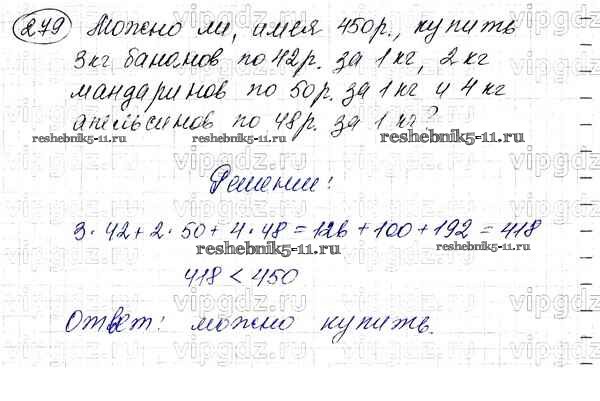 279 Можно ли, имея 450р., купить
3кг бананов по 42р. за 1кг, 2кг
мандаринов по 50р. за 1кг и 4кг
апельсинов по 48р. за 1кг?
reshebnik5-11.ru reshebnik5-11.ru reshebnik5-11.ru
Решение:
3·42+2·50+4·48=126+100+192=418
reshebnik5-11.ru reshebnik5-11.ru
418<450
Ответ: можно купить.
vipgdz.ru